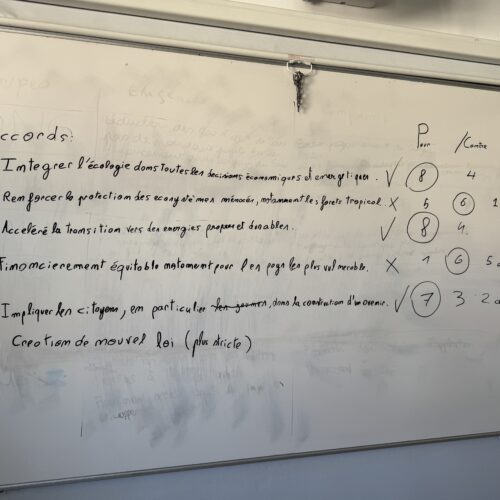 ccords: Pour /Contre
Integrer l'écologie dans toutes les decisions économiques et energetiques. ✓ 8 4
Renforcer la protection des ecosystèmes menacées, notamment les forets tropical. X 5 6 1
Accéléré la transition vers des energies propres et durables. ✓ 8 4
Financierement équitable notament pour les pays les plus vulnerable. X 1 6 5
Impliquer les citoyens, en particulier , dans la construction d'un avenir. ✓ 7 3 2
Creation de nouvel loi (plus stricte)